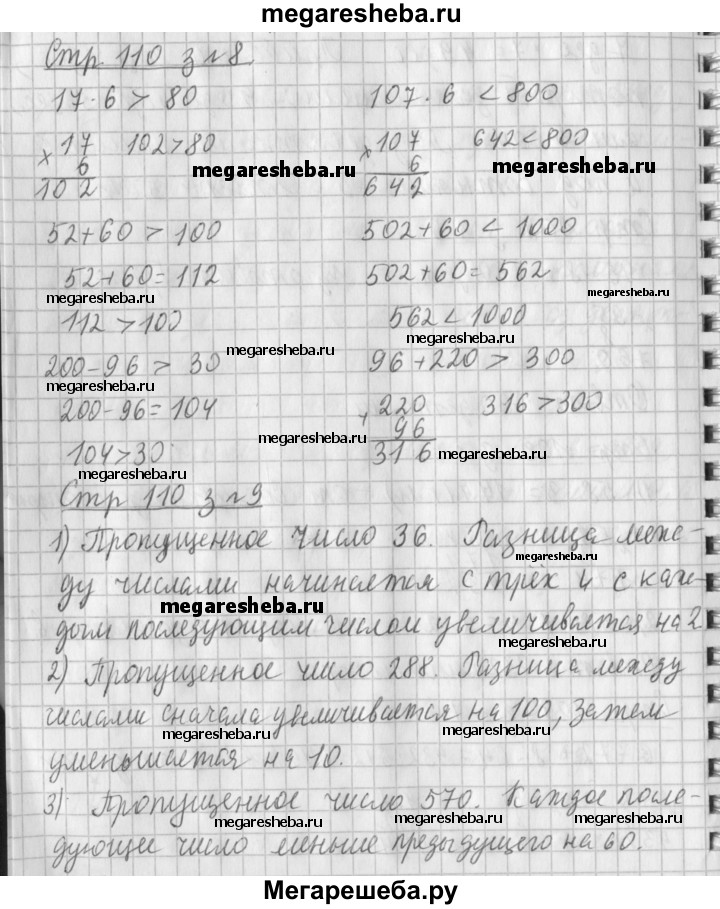 megaresheba.ru
Стр. 110 з №8
17·6 > 80 107·6 < 800
×17 102>80 ×107 642<800
6 megaresheba.ru 6 megaresheba.ru
102 642
52+60 > 100 502+60 < 1000
52+60=112 502+60=562
megaresheba.ru megaresheba.ru megaresheba.ru
112 > 100 562 < 1000
megaresheba.ru megaresheba.ru
200-96 > 30 96+220 > 300
megaresheba.ru
200-96=104 +220 316>300
megaresheba.ru 96
104>30 316 megaresheba.ru
megaresheba.ru
Стр 110 з №9
1) Пропущенное число 36. Разница меж-
megaresheba.ru
ду числами начинается с трёх и с каж-
megaresheba.ru megaresheba.ru
дым последующим числом увеличивается на 2.
megaresheba.ru
2) Пропущенное число 288. Разница между
megaresheba.ru
числами сначала увеличивается на 100, затем
megaresheba.ru megaresheba.ru
уменьшается на 10.
3) Пропущенное число 570. Каждое после-
megaresheba.ru megaresheba.ru
дующее число меньше предыдущего на 60.
megaresheba.ru
Мегарешеба.ру